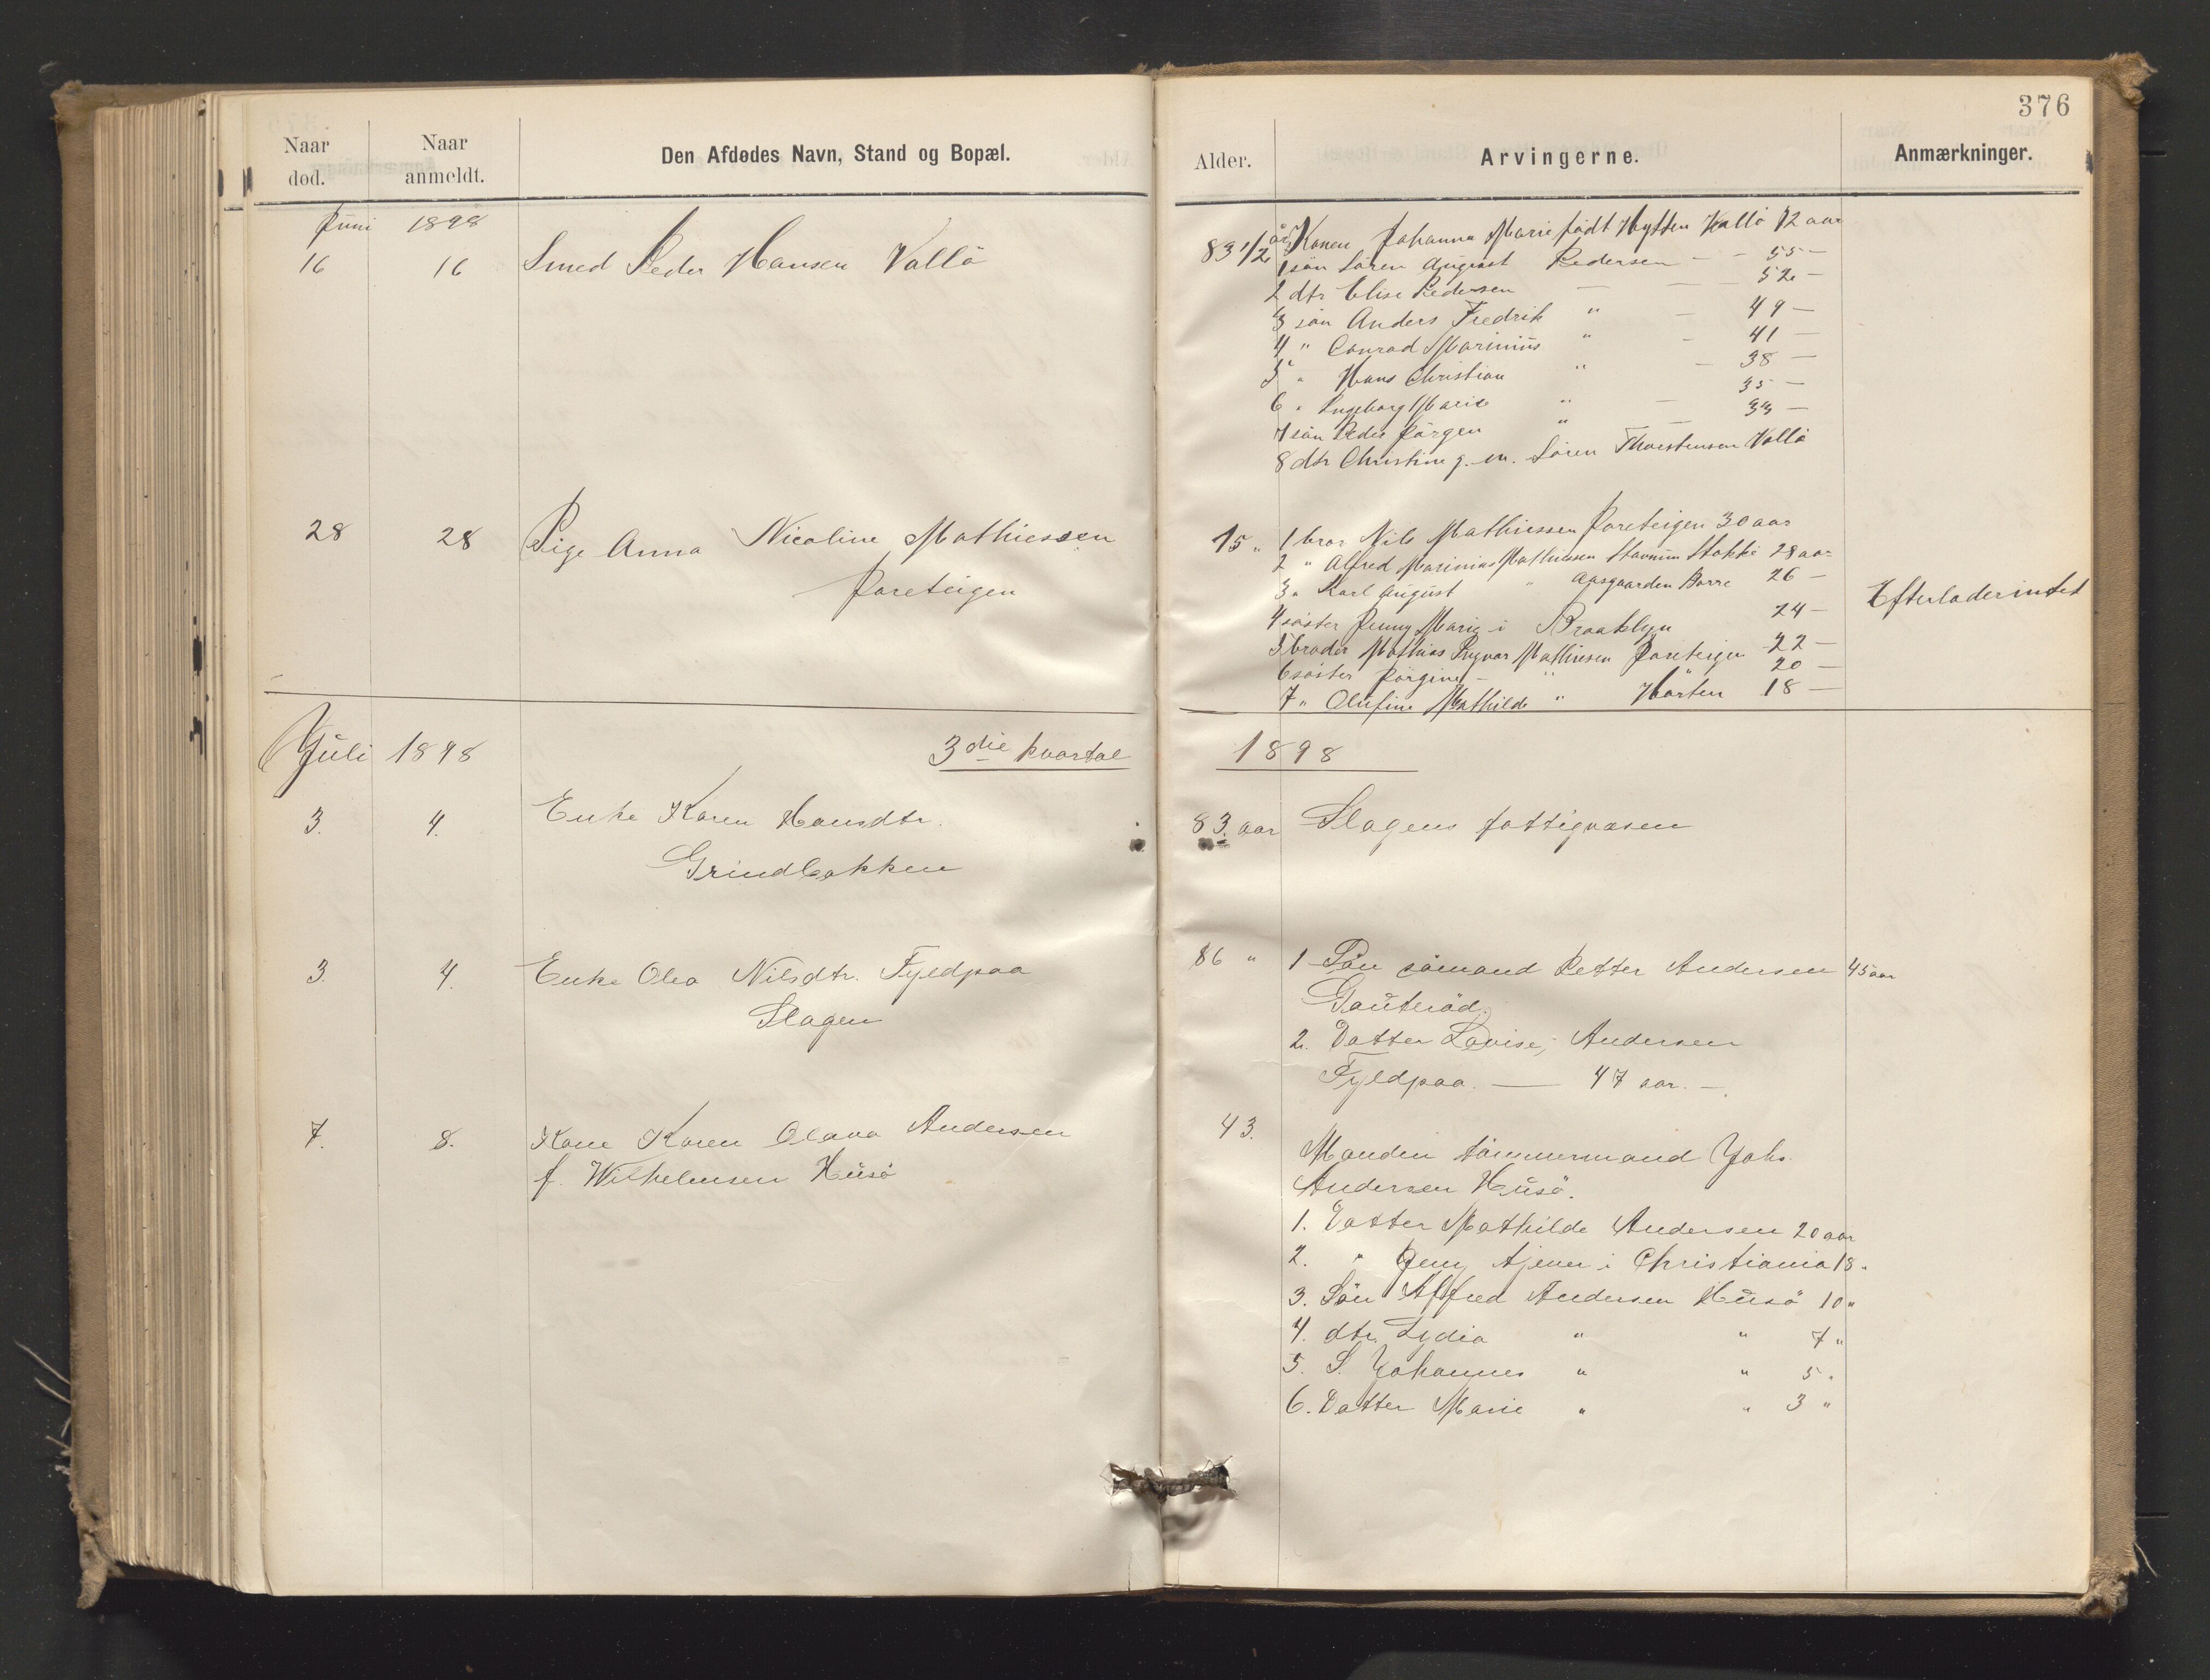 376
Naar død.
Naar anmeldt.
Den Afdødes Navn, Stand og Bopæl.
Alder.
Arvingerne.
Anmærkninger.
Juni 1898
16 16 Smed Peder Hansen Vallö
83 1/2 år Konen Johanna Marie födt Hytten Vallö 72 aar
1 sön Sören August Pedersen - - 55 -
2 dtr Elise Pedersen - - - 52 -
3 sön Anders Fredrik " - 49 -
4 " Conrad Marinius " - 41 -
5 " Hans Christian " - 38 -
6 " Ingeborg Marie " - 35 -
7 sön Peder Jörgen " - 33 -
8 dtr Christine g. m. Sören Thorstensen Vallö
28 28 Pige Anna Nicoline Mathiessen
Jareteigen
15 " 1 bror Nils Mathiessen Jareteigen 30 aar
2 " Alfred Marinius Mathiessen Stavnum Stokke 28 aar
3 " Karl August " Aasgaarden Borre 26 -
4 söster Jenny Marie i Braaklyn 24 -
5 broder Mathias Ingvar Mathiesen Jareteigen 22 -
6 söster Jörgine - " 20 -
7 " Olufine Mathilde " Horten 18 -
Efterlader intet
Juli 1898 3die kvartal
1898
3. 4. Enke Karen Hansdtr.
Grindbakken
83. aar Slagens fattigvæsen
3. 4. Enke Olea Nilsdtr. Fyldpaa
Slagen
86 " 1 Sön sömand Petter Andersen 45 aar
Gauteröd.
2. Datter Lovise, Andersen
Fyldpaa. — 47 aar. -
7. 8. Kone Karen Olava Andersen
f. Wilhelmsen Husö
43.
Manden tömmermand Johs.
Andersen Husö.
1. Datter Mathilde Andersen 20 aar
2. " Jeny tjener i Christiania 18 "
3. Sön Alfred Andersen Husö 10 "
4. dtr. Lydia " " 7 "
5. S. Johannes " " 5 "
6. Datter Marie " " 3 "